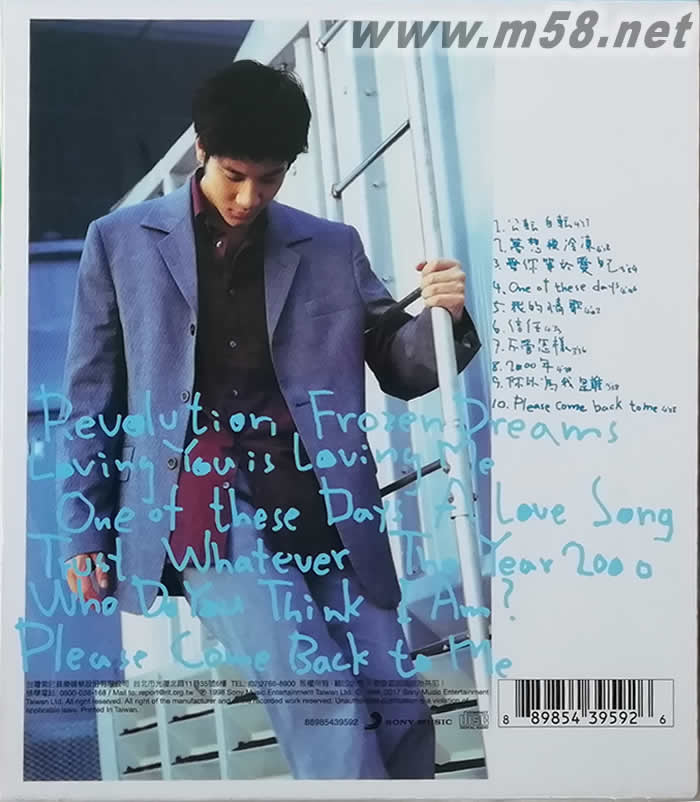 www.m58.net
1. 公転自転 4:17
2. 夢想被冷凍
3. 愛你等於愛自己
4. One of these days
5. 我的情歌
6. 信任
7. 不管怎樣
8. 2000年
9. 你以為我是誰
10. Please come back to me
Revolution Frozen Dreams
Loving You is Loving Me
One of these Days A Love Song
Trust Whatever The Year 2000
Who Do You Think I Am?
Please Come Back to Me
台北市光復北路11巷35號6樓 TEL: (02)2766-8800
檢舉電話: 0800-028-168 / Mail to: report@rit.org.tw ℗ 1998 Sony Music Entertainment Taiwan Ltd. 2017 Sony Music Entertainment
Taiwan Ltd. All right reserved. All right of the manufacturer and recorded work reserved. is a violation of
applicable laws. Printed In Taiwan.
88985439592 SONY MUSIC COMPACT disc DIGITAL AUDIO
8 89854 39592 6